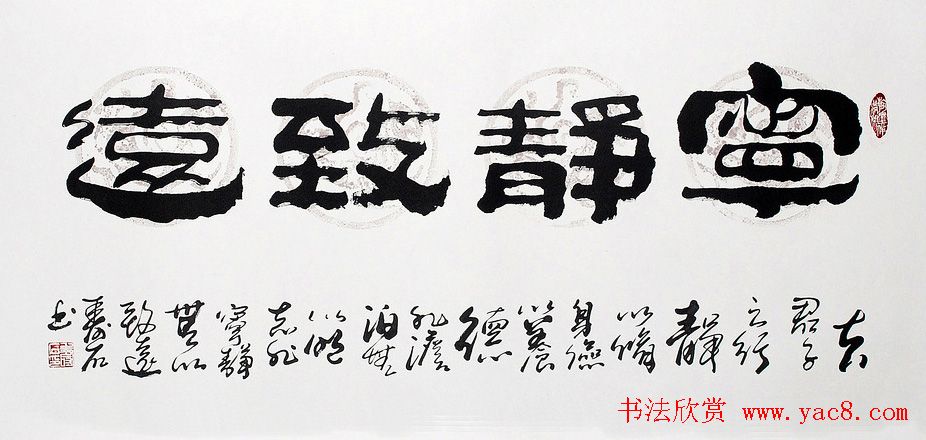 寧靜致遠
夫
君子
之行
靜
以脩
身儉
以養
德
非澹
泊無
以明
志非
寧靜
無以
致遠
壽石
书
书法欣赏 www.yac8.com